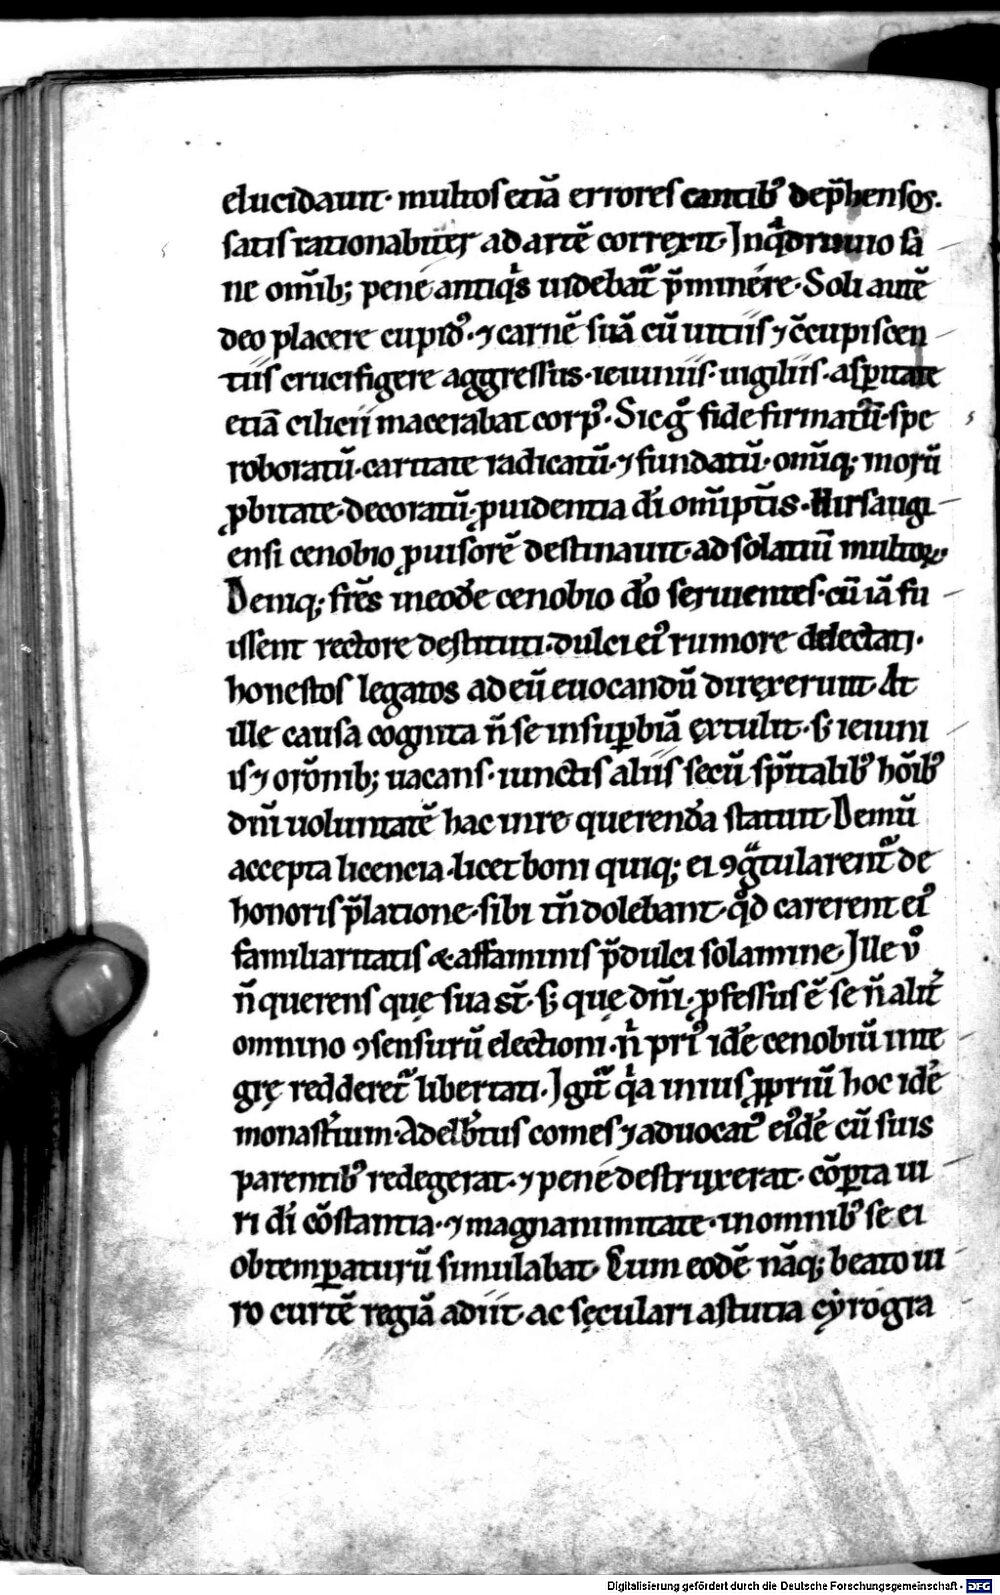 elucidauit· multos etiā errores cantibꝰ dep̄hensos.
satis rationabiliter ad artē correxit· In q̊driuuio sa
ne om̄ib; pene antiqͥs uidebat᷑ p̄minere· Soli autē
deo placere cupidꝰ· ⁊ carnē suā cū uitiis ⁊ c̄cupiscen
tiis crucifigere aggressus· ieiuniis· uigiliis· asꝑitate
etiā cilicii macerabat corpꝰ· Sic gͦ fide firmatū· spe
roboratū· caritate radicatū· ⁊ fundatū· omīq; morū
ꝓbitate· decoratū· ꝓuidentia dī om̄iptīs· Hirsaugi
ensi cenobio ꝓuisorē destinauit· ad solatiū multoꝝ.
Deniq; fr̄es in eodē cenobio dō seruientes· cū iā fu
issent rectore destituti· dulci eiꝰ rumore delectati·
honestos legatos ad eū euocandū direxerunt· At
ille causa cognita n̄ se in suꝑbiā extulit· s; ieiuni
is ⁊ orōnib; uacans· iunctis aliis secū sp̄italibꝰ hōibꝰ
dn̄i uoluntatē hac in re querenda statuit· Demū
accepta licencia· licet boni quiq; ei ꝯgͣtularent᷑ de
honoris p̄latione· sibi tn̄ dolebant· qd̊ carerent eiꝰ
familiaritatis & affaminis p̄dulci solamine· Ille ů
n̄ querens que sua st̄· s; que dn̄i· ꝓfessus ē se n̄ alit̄
omnino ꝯsensurū electioni· nͥ priꝰ idē cenobiū inte
gre redderet᷑ libertati· Igit᷑ qͥa in ius ꝓpriū hoc idē
monast̄ium· Adelb̄tus comes ⁊ aduocatꝰ eiꝰdē cū suis
parentibꝰ redegerat· ⁊ pene destruxerat· cōꝑta ui
ri dī cōstantia· ⁊ magnanimitate· in omnibꝰ se ei
obtemꝑaturū simulabat· Cum eodē nāq; beato ui
ro curtē regiā adiit· ac seculari astutia cyrogra
Digitalisierung gefördert durch die Deutsche Forschungsgemeinschaft · DFG